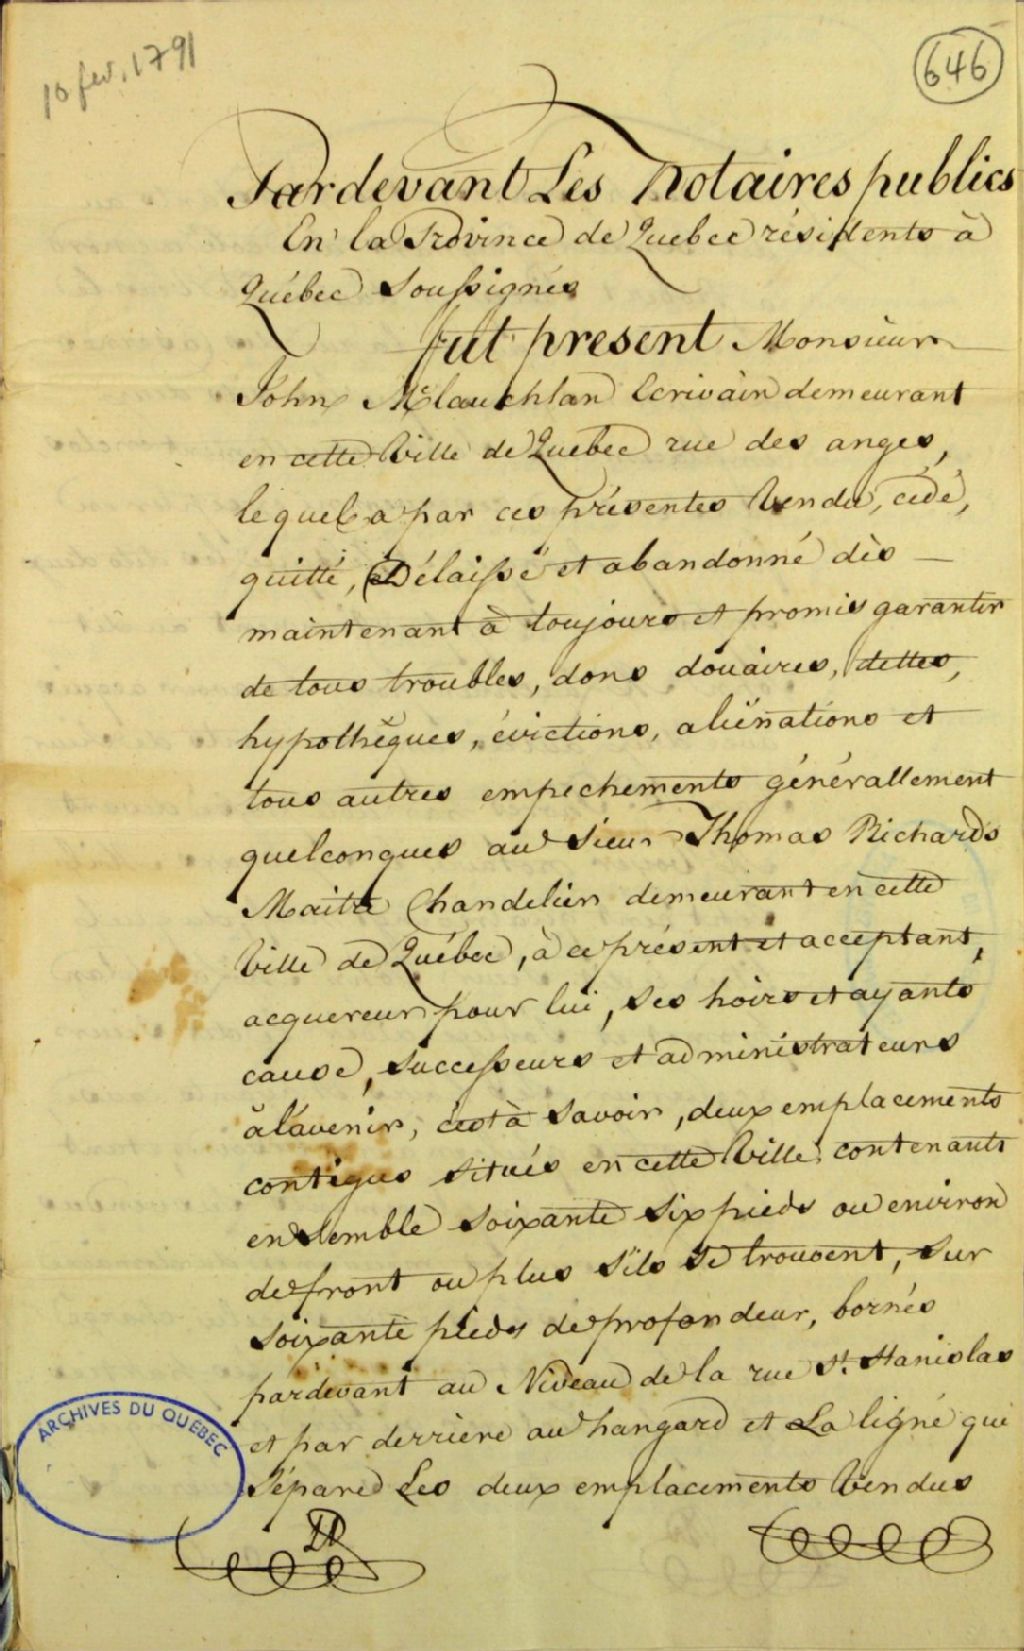 10 fev. 1791
646
Pardevant Les Notaires publics
En la Province de Quebec résidents à
Québec Soussignés
fut present Monsieur
John Mclauchlan Ecrivain demeurant
en cette Ville de Quebec rue des anges,
lequel a par ces présentes Vendu, cédé,
quitté, Délaissé et abandonné dès
maintenant à toujours et promis garantir
de tous troubles, dons douaires, dettes,
hypothèques, évictions, aliénations et
tous autres empechements générallement
quelconques au Sieur Thomas Richards
Maitre Chandelier demeurant en cette
Ville de Québec, à ce présent et acceptant,
acquereur pour lui, ses hoirs et ayants
cause, successeurs et administrateurs
à l'avenir, c'est à Savoir, deux emplacements
contigus Situés en cette Ville contenants
ensemble Soixante Six pieds ou environ
de front ou plus S'ils Se trouvent, Sur
Soixante pieds de profondeur, bornés
pardevant au Niveau de la rue St. Stanislas
et par derriere au hangard et La ligne qui
Sépare Les deux emplacements Vendus
ARCHIVES DU QUEBEC